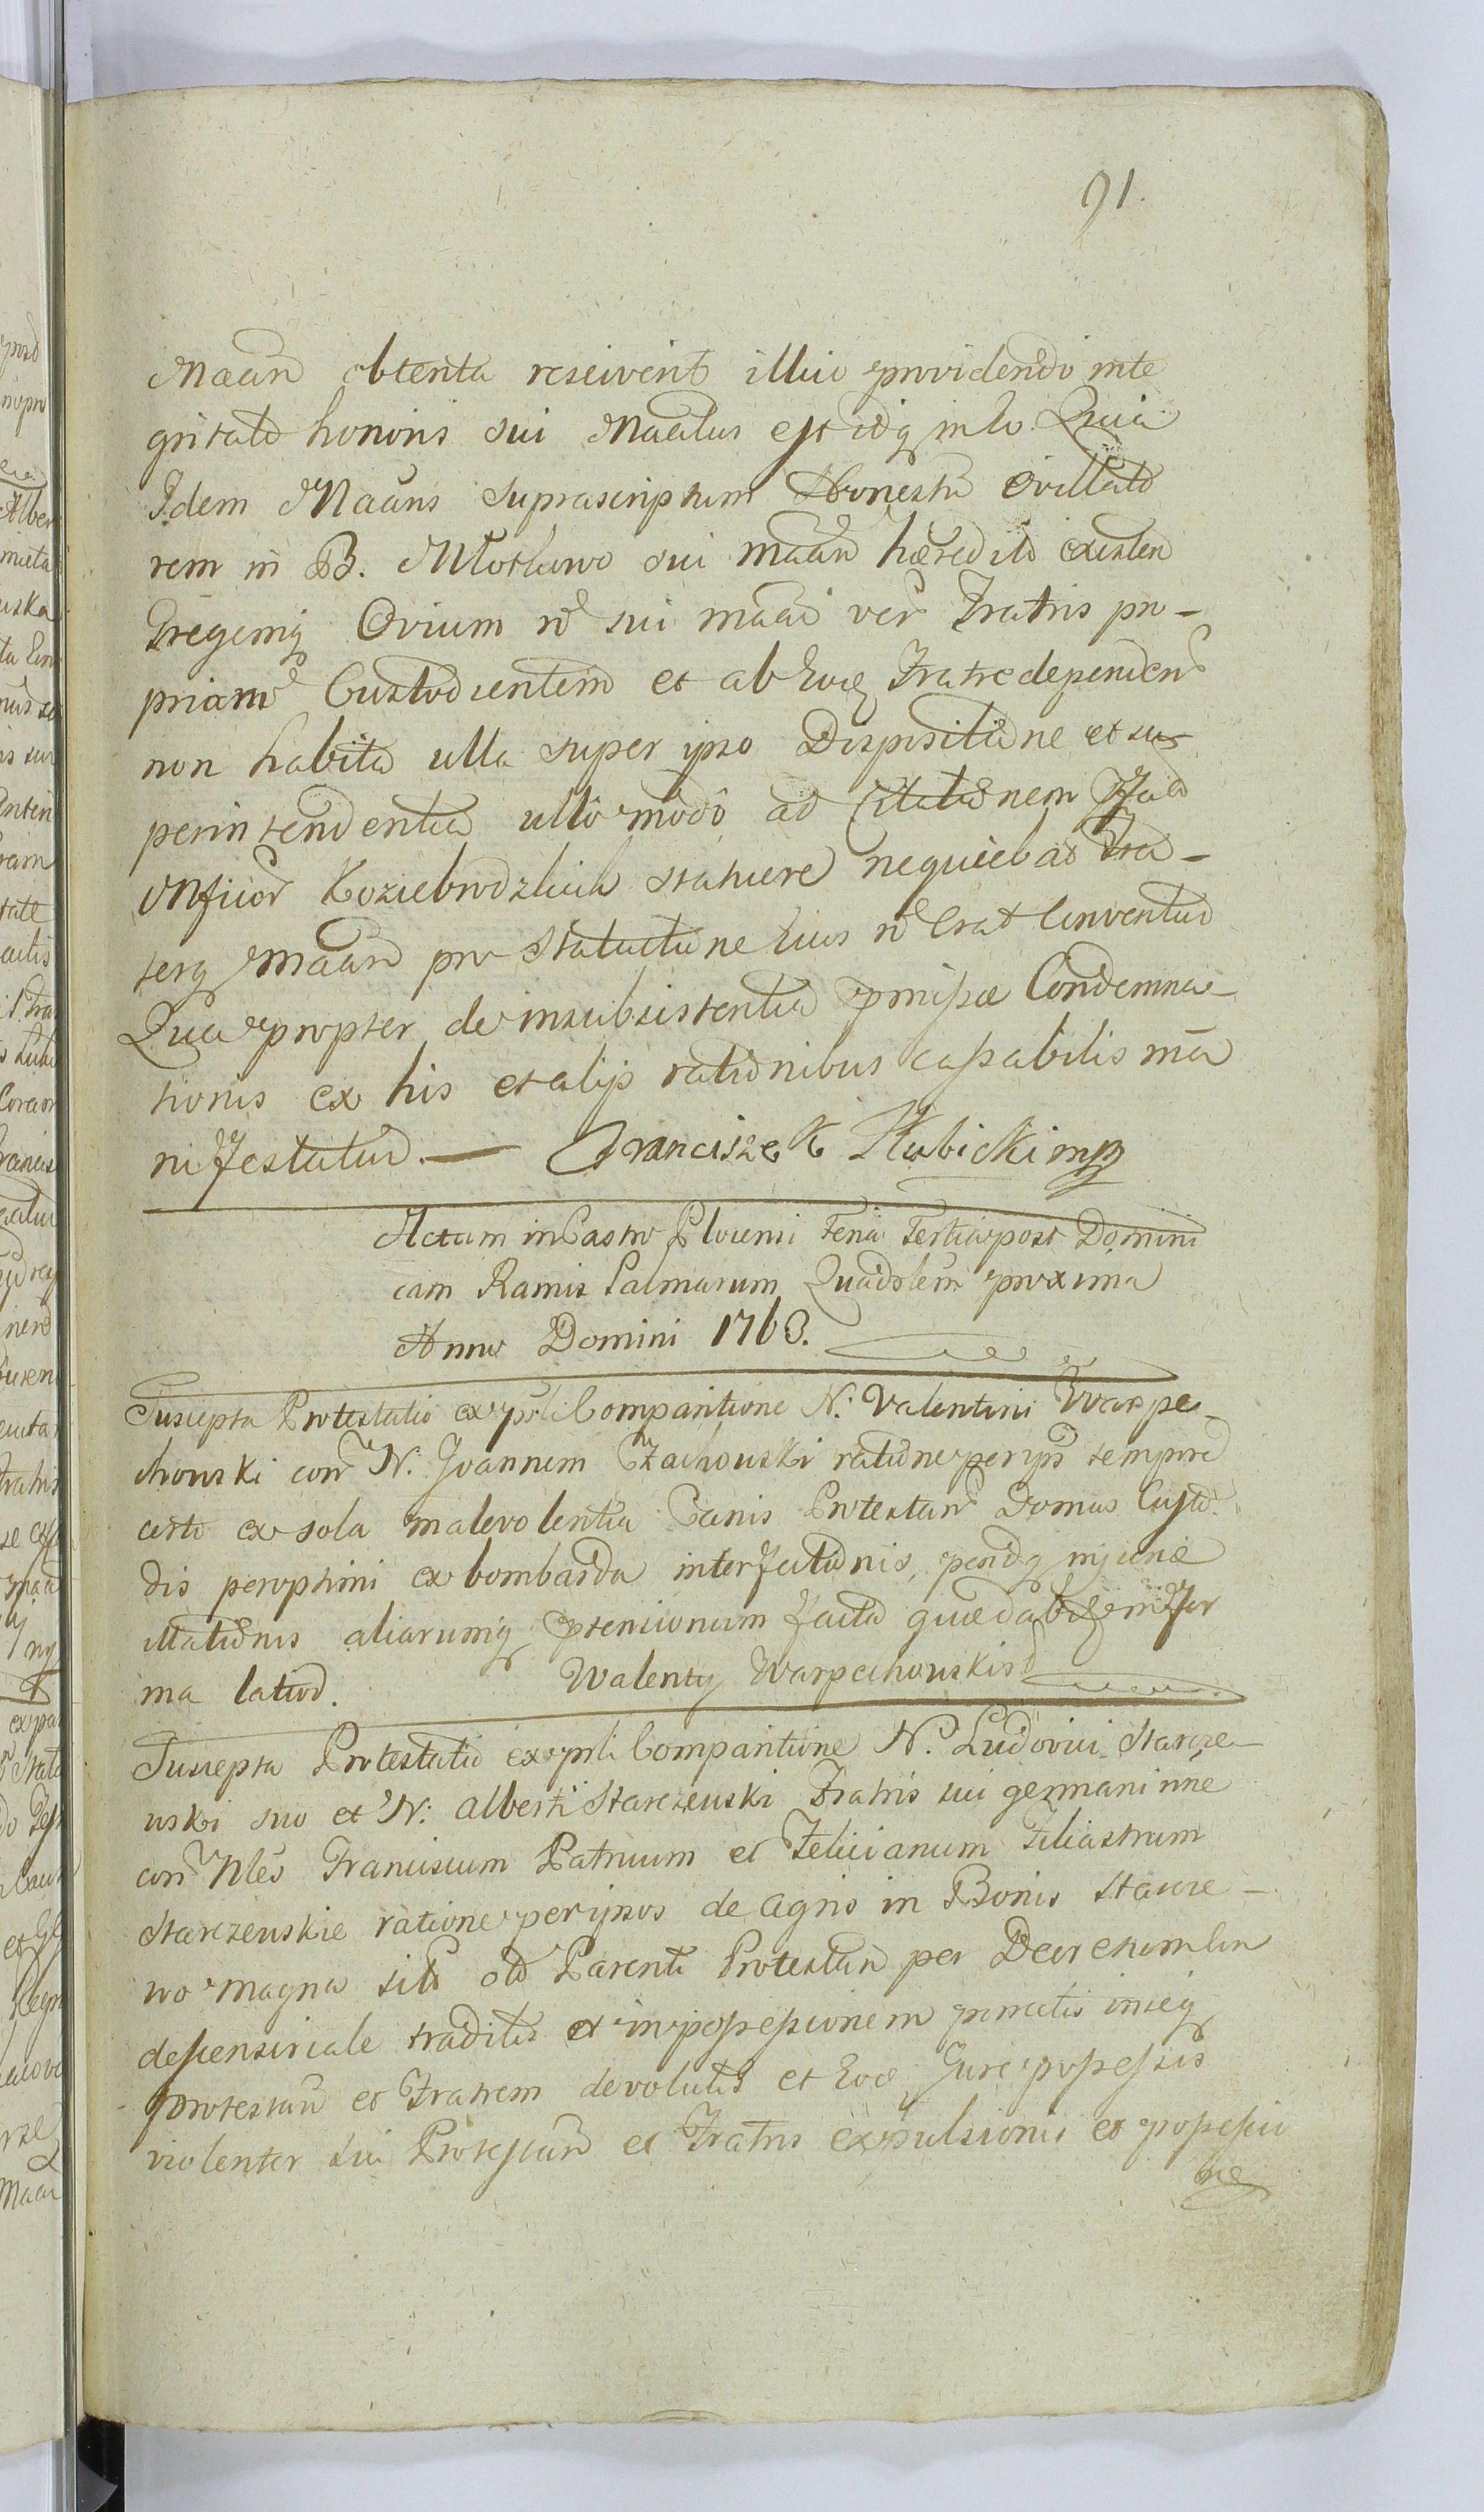 91.
Maan obtenta resciverit illico providendo inte
gritati honoris sui Maatus est idq in eo Quia
Idem Maans suprascriptum Honestu Ovillato
rem in B. Młochowo sui maan haeredit existen
Gregemq Ovium n sui maan ver Fratris pro-
priam Custodientem et ab Eoq Fratre dependen
non habita ulla super ipso Dispositione et su-
perintendentia ullo modo ad Citationem
Koziebrodzkich statuere nequiebat Fra-
terq maan pro Statuitione Eius n Erat Conventus
Qua propter de insubsistentia pmissae Condemna-
tionis ex his et alijs rationibus cassabilis ma
nifestatur. — Franciszek Słubicki mp
Actum in Castro Plocensi Feria Tertia post Domini
cam Ramis Palmarum Quadrlem proxima
Anno Domini 1763.
Suscepta Protestatio ex psli Comparitione N. Valentini Warpe-
chouski con N. Joannem Czachouski ratione per ips tempore
certo ex sola malevolentia Canis Protestan Domus Custo
dis peroptimi ex bombarda interfectionis, pendq injuriae
illationis aliarumq ptensionum facta
ma latior. Walenty Warpechouski
Suscepta Protestatio ex psli Comparitione N. Ludovici Starcze-
uski suo et N. Alberti Starczeuski Fratris sui germani nne
con Nles Franciscum Patruum et Felicianum Filiastrum
Starczeuskie ratione per ipsos de agris in Bonis Starcze-
wo magna sit olo Parenti Protestan per Decretum Con
descensoriale traditis et in possessionem pmretis inseq
protestan et Fratrem devolutis et Eoq Jure possessis
violenter sui Protestan et Fratris expulsionis et possessio
ne